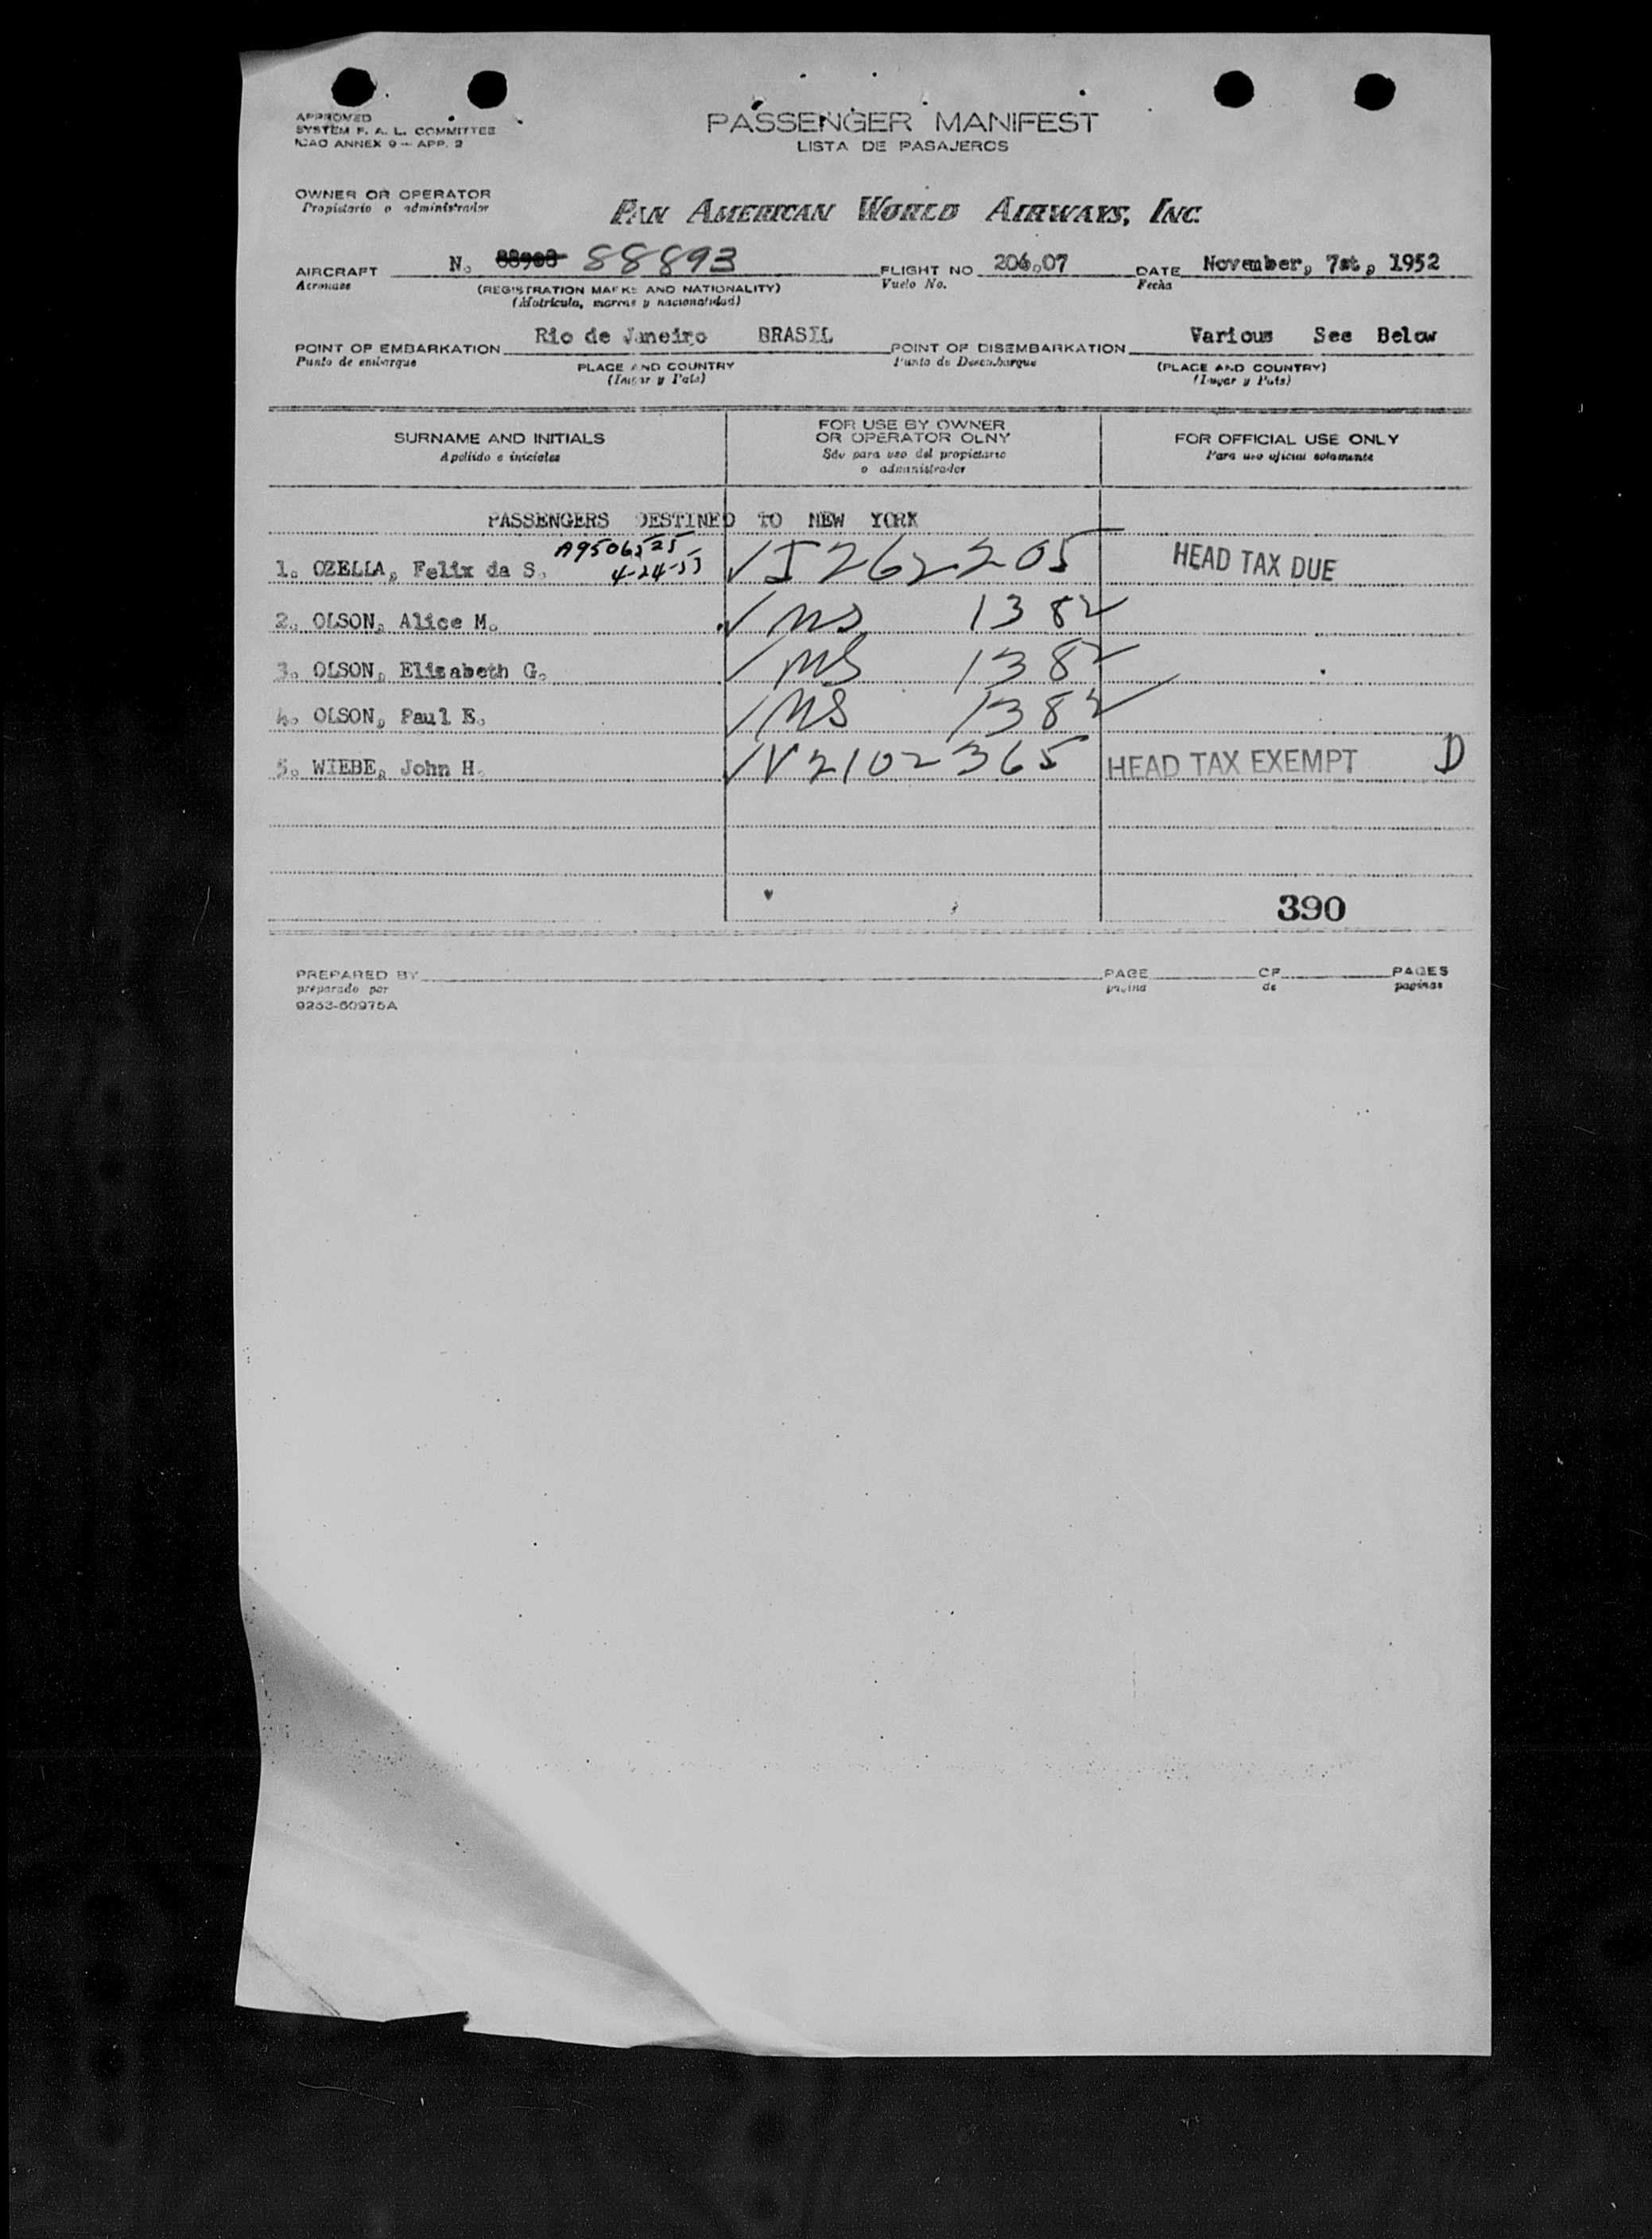 APPROVED
SYSTEM F. A. L. COMMITTEE
ICAO ANNEX 9 -- APP. 2
PASSENGER MANIFEST
LISTA DE PASAJEROS
OWNER OR OPERATOR
Propietario o administrador
PAN AMERICAN WORLD AIRWAYS, INC.
AIRCRAFT N. 88903 88893 FLIGHT NO 206.07 DATE November, 7st, 1952
Aeronave Vuelo No. Fecha
(REGISTRATION MARKS AND NATIONALITY)
(Matrícula, marcas y nacionalidad)
POINT OF EMBARKATION Rio de Janeiro BRASIL POINT OF DISEMBARKATION Various See Below
Punto de embarque Punto de Desembarque
PLACE AND COUNTRY (PLACE AND COUNTRY)
(Lugar y País) (Lugar y País)
SURNAME AND INITIALS
Apellido e iniciales
FOR USE BY OWNER
OR OPERATOR OLNY
Sólo para uso del propietario
o administrador
FOR OFFICIAL USE ONLY
Para uso oficial solamente
PASSENGERS DESTINED TO NEW YORK
A9506525
1. OZELLA, Felix da S. 4-24-53 ✓ I262205 HEAD TAX DUE
2. OLSON, Alice M. ✓ NS 1382
3. OLSON, Elisabeth G. ✓ NS 1382
4. OLSON, Paul E. ✓ NS 1382
5. WIEBE, John H. ✓ V2102365 HEAD TAX EXEMPT D
390
PREPARED BY PAGE OF PAGES
preparado por página de paginas
9253-60975A